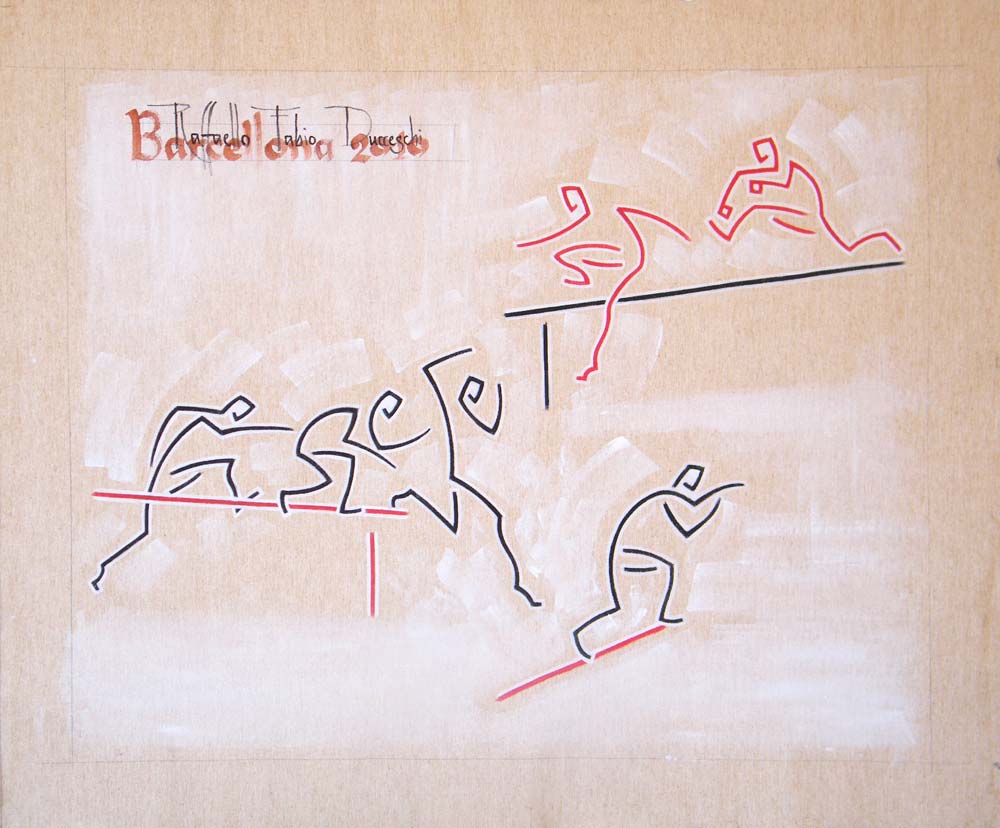 Raffaello Fabio Ducceschi
Barcellona 2010